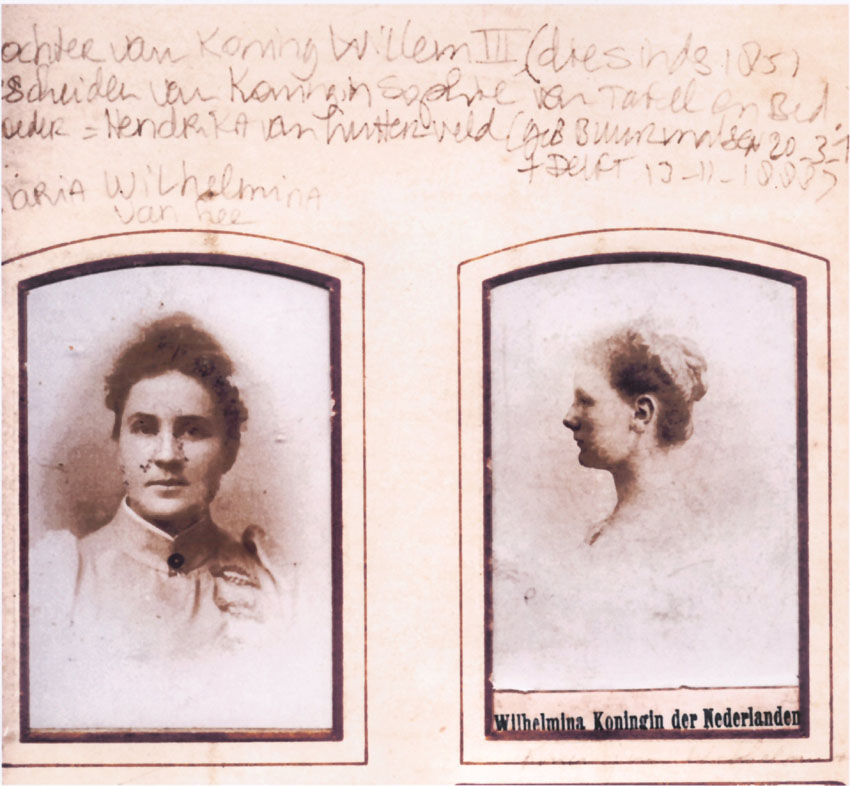 ochter van Koning Willem III (die sinds 1857
scheiden van Koningin Sophie van Tafel en Bed.
oeder = Hendrika van Lutterveld (geB Buurmalsen 20-3-1
+ Delft 13-11-1888)
MARIA Wilhelmina
van Ree
Wilhelmina Koningin der Nederlanden